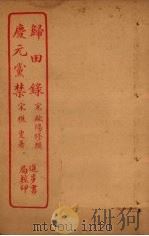 歸田錄 宋歐陽修撰
慶元黨禁 宋樵叟著
進步書局校印